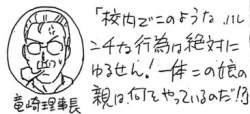 「校内でこのようなハレ
ンチな行為は絶対に
ゆるせん！一体この娘の
親は何てやっているのだ!?」
竜崎理事長